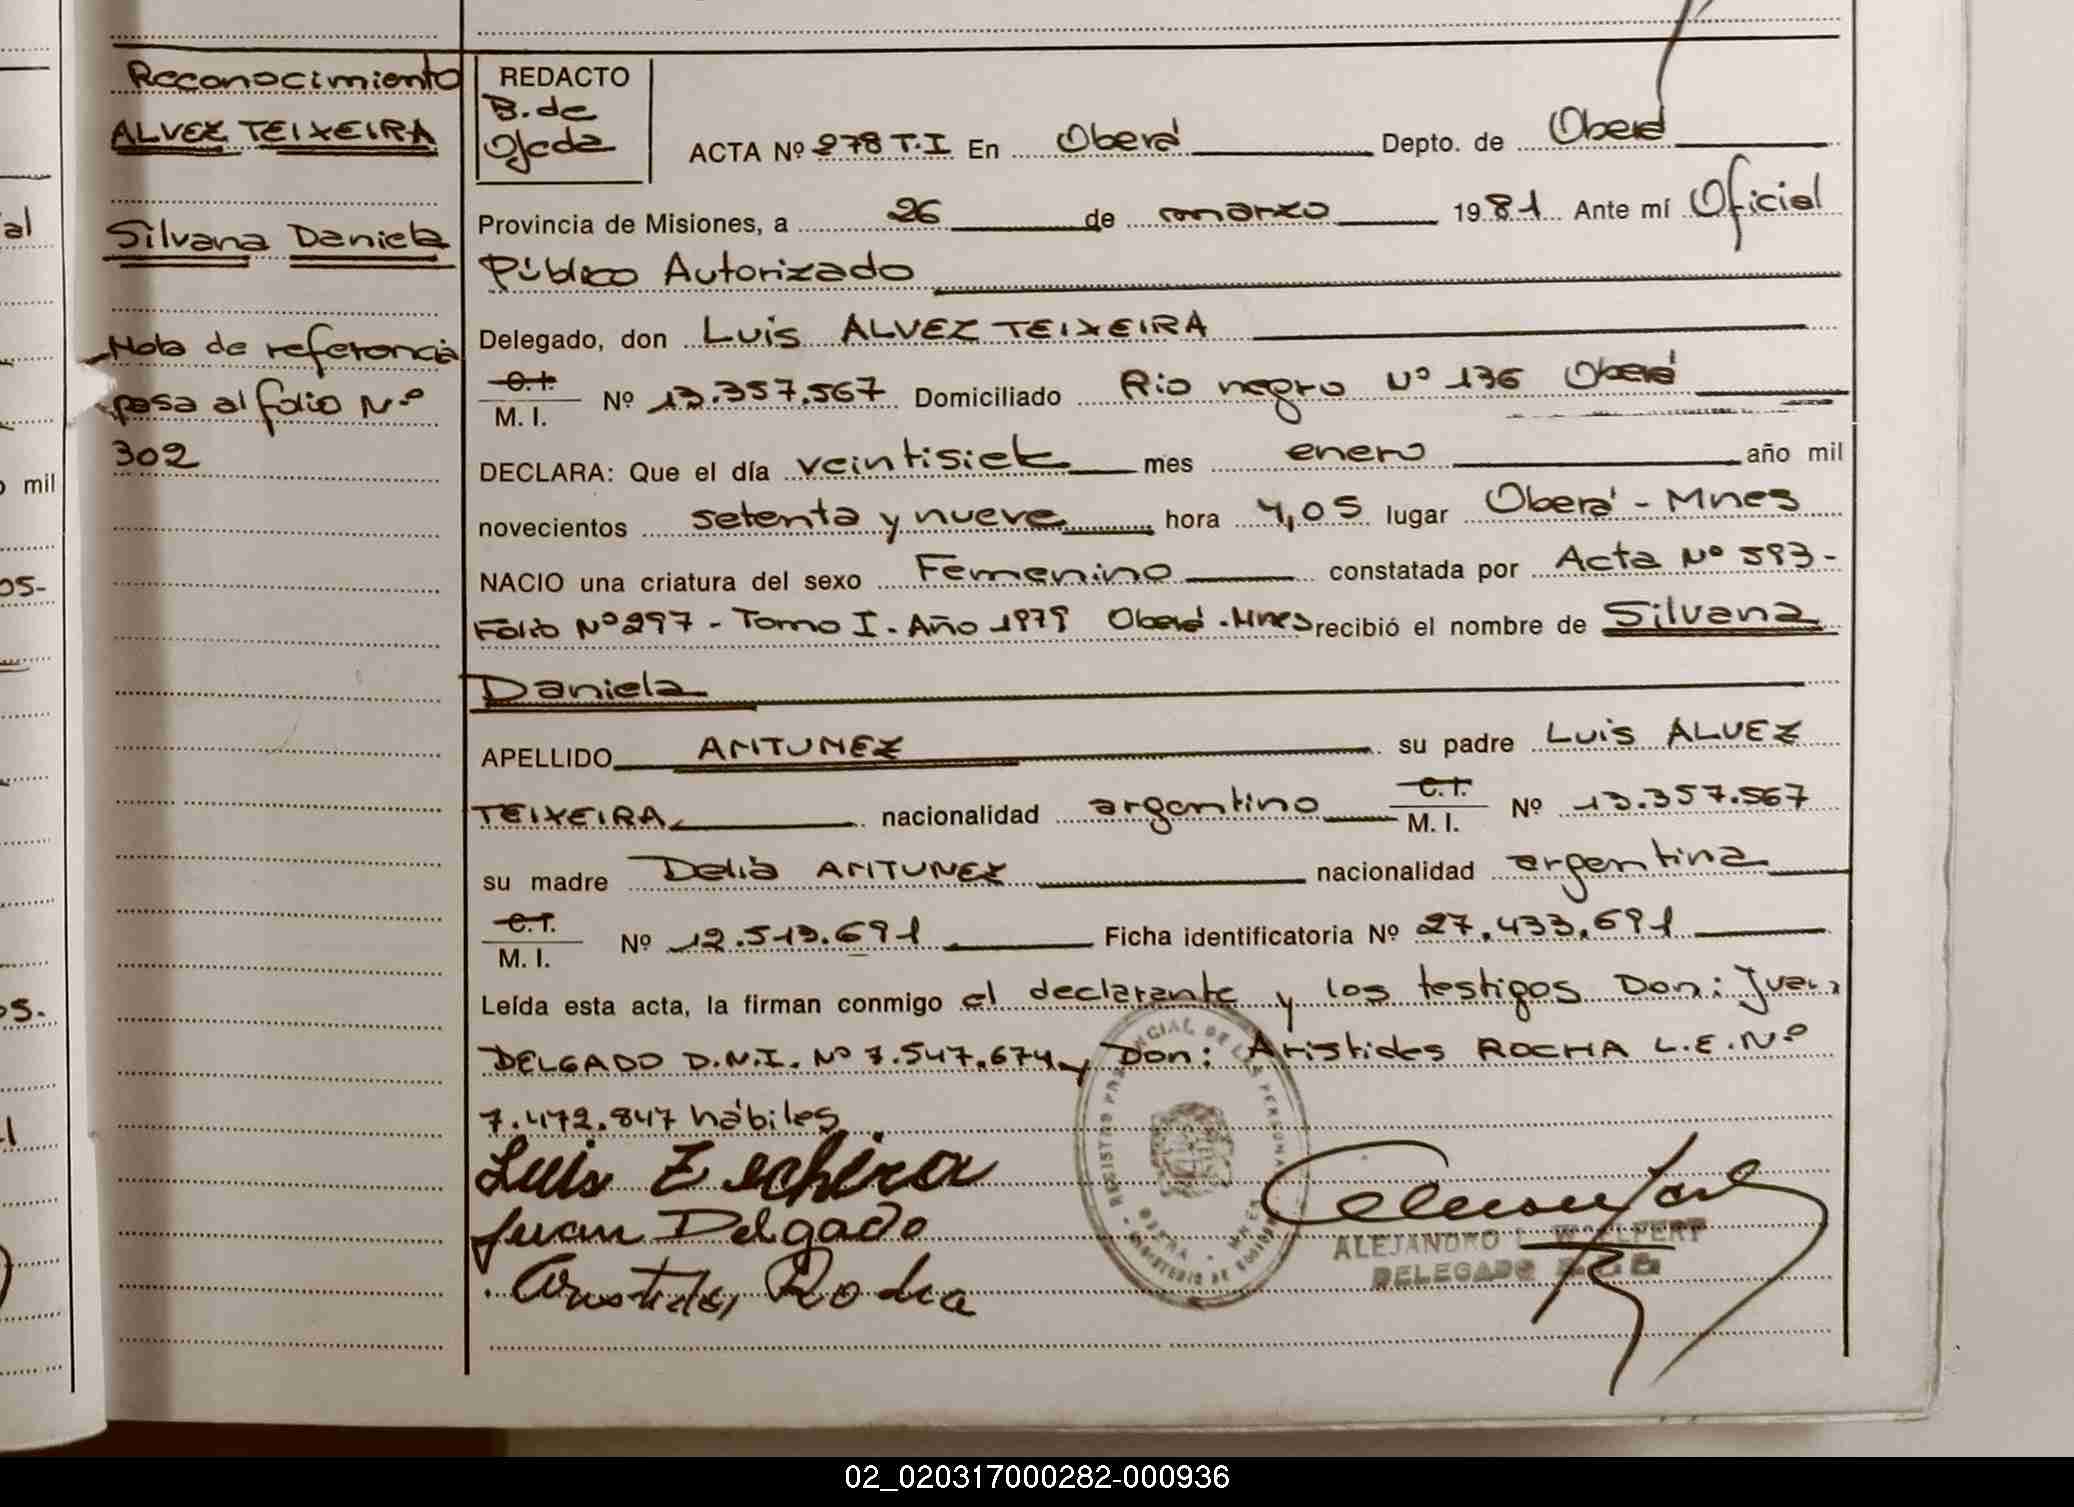 Reconocimiento
ALVEZ TEIXEIRA
Silvana Daniela
Nota de referencia
pasa al folio Nº
302
REDACTO
B. de
Ojeda
ACTA Nº 278 T.I En Oberá Depto. de Oberá
Provincia de Misiones, a 26 de marzo 1981 Ante mí Oficial
Público Autorizado
Delegado, don Luis ALVEZ TEIXEIRA
C.I.
M. I. Nº 13.357.567 Domiciliado Rio negro Nº 136 Oberá
DECLARA: Que el día veintisiete mes enero año mil
novecientos setenta y nueve hora 4,05 lugar Oberá - Mnes
NACIO una criatura del sexo Femenino constatada por Acta Nº 593-
Folio Nº 297 - Tomo I. Año 1979 Oberá - Mnes recibió el nombre de Silvana
Daniela
APELLIDO ANTUNEZ su padre Luis ALVEZ
TEIXEIRA nacionalidad argentino C.I. M. I. Nº 13.357.567
su madre Delia ANTUNEZ nacionalidad argentina
C.I.
M. I. Nº 12.513.691 Ficha identificatoria Nº 27.433.691
Leída esta acta, la firman conmigo el declarante y los testigos Don: Juan
DELGADO D.N.I. Nº 7.547.674 y Don: Aristides ROCHA L.E. Nº
7.472.847 hábiles
Luis
Juan Delgado
Aristides Rocha
REGISTRO PROVINCIAL DE LAS PERSONAS
OBERA - MNES
MINISTERIO DE GOBIERNO
ALEJANDRO
DELEGADO
al
o mil
05-
os.
02_020317000282-000936